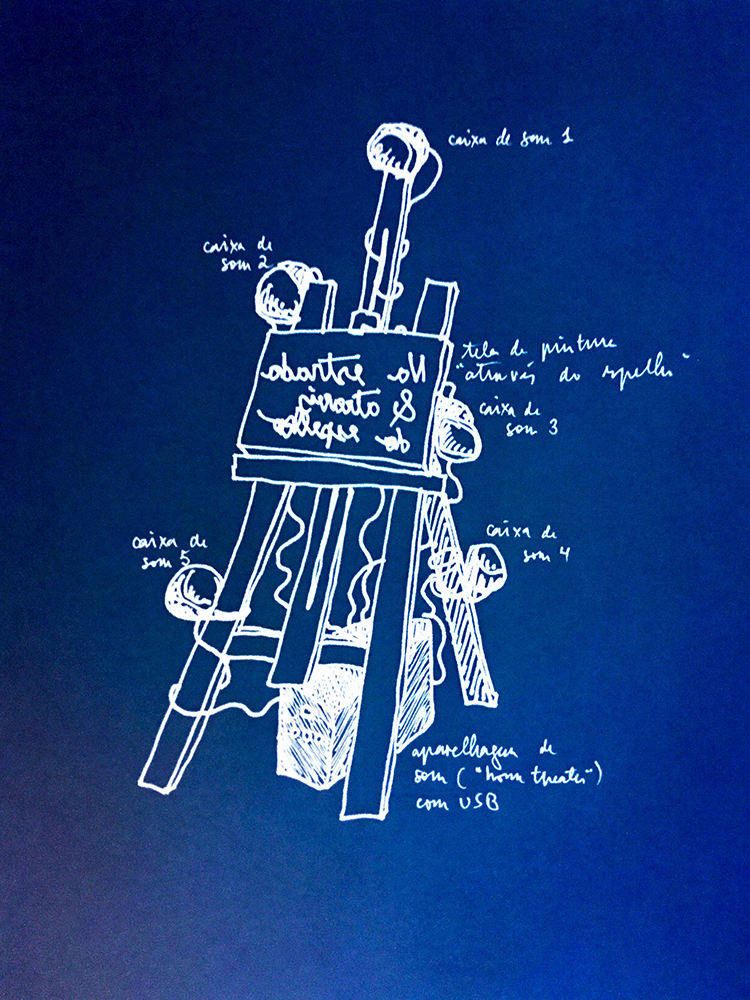 caixa de som 1
caixa de
som 2
tela de pintura
"através do espelho"
Na estrada
& através
do espelho
caixa de
som 3
caixa de
som 4
caixa de
som 5
aparelhagem de
som ("home theater")
com USB